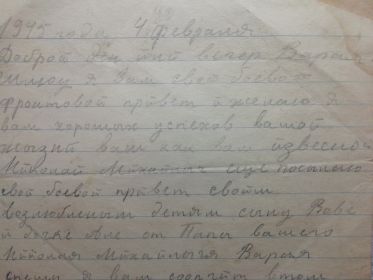 1945 года 4 февраля
Доброй День или вечер Варя
шлю я Вам свой боевой
фронтовой привет и желаю я
вам хороших успехов вашой
жызни ваш как вам извесной
Николай Михайлыч еще посылаю
свой боевой привет своим
возлюбленым детям сыну Вове
и дочке Але от Папы вашего
Николая Михайлыча Варья
спешу я вам сообчить втом